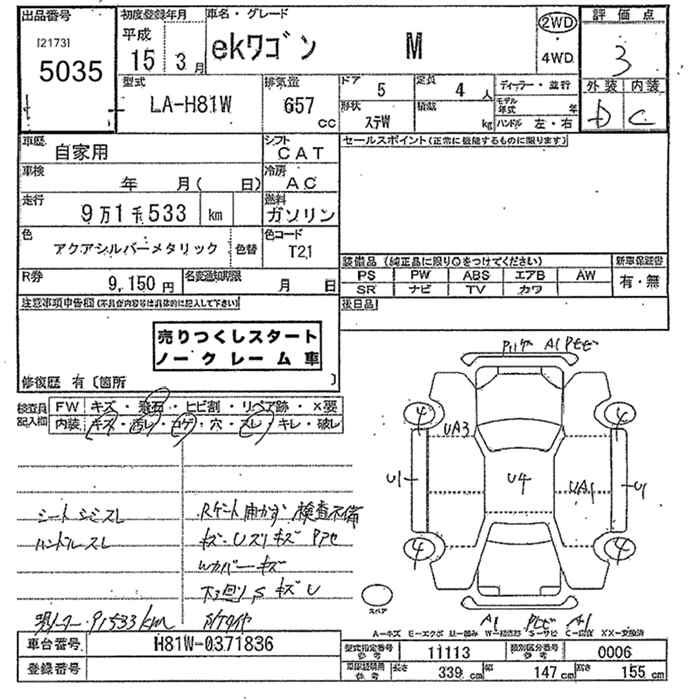 出品番号 初度登録年月 車名・グレード 2WD 評価点
[2173] 平成 ekワゴン M 4WD 3
5035 15 3月
型式 排気量 ドア 5 定員 4人 ディーラー・並行 外装 内装
LA-H81W 657cc 形状 ステW 積載 kg モデル年式 年 D C
ハンドル 左・右
車歴 自家用 シフト CAT セールスポイント(正常に機能するものに限ります)
車検 年 月( 日) 冷房 AC
走行 9万1千533 km 燃料 ガソリン
色 アクアシルバーメタリック 色替 色コード T21
装備品(純正品に限り○をつけてください) 新車保証書
R券 9,150円 名変通知期限 月 日 PS PW ABS エアB AW 有・無
SR ナビ TV カワ
注意事項申告欄(不具合内容等は具体的に記入して下さい) 後日品
売りつくしスタート
ノークレーム車
修復歴 有〔箇所 〕
検査員記入欄 FW キズ・飛石・ヒビ割・リペア跡・X要
内装 キズ・汚レ・コゲ・穴・スレ・キレ・破レ
A1
4 4
UA3
U1 U4 UA1 U1
4 4
シートシミスレ
検査不備
ハンドルスレ
Wカバーキズ
下回りSキズU
現メーター 91533km
スペア
A1 A1
A-キズ E-エクボ U-凹み W-補修跡 S-サビ C-腐食 XX-交換済
車台番号 H81W-0371836 型式指定番号 参考 11113 類別区分番号 参考 0006
登録番号 長さ 339cm 幅 147cm 高さ 155cm